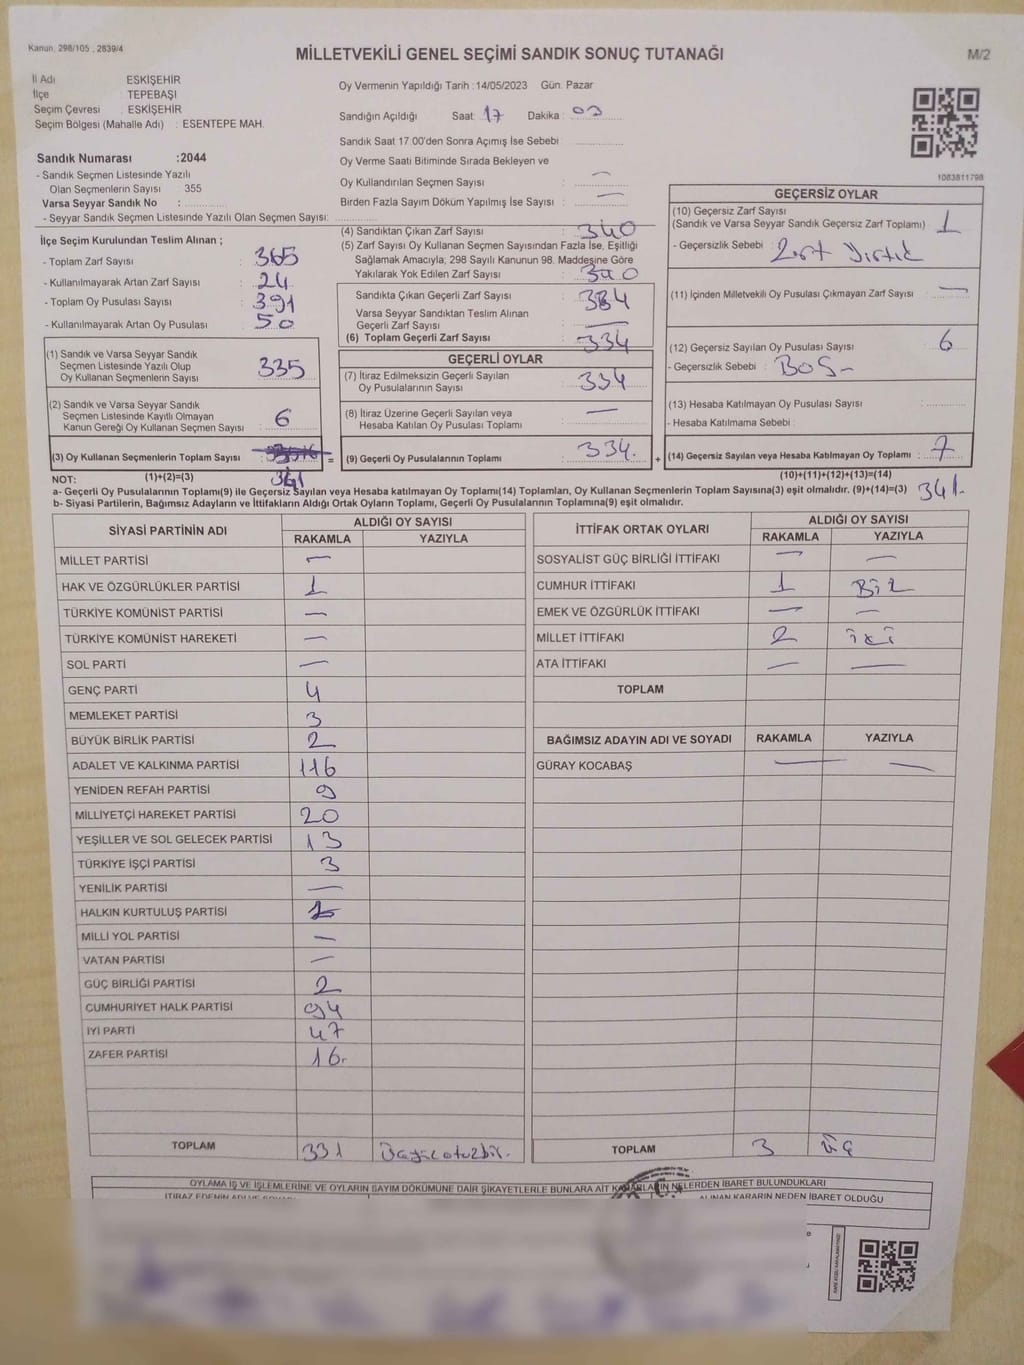 Kanun: 298/105 , 2839/4
MİLLETVEKİLİ GENEL SEÇİMİ SANDIK SONUÇ TUTANAĞI
M/2
İl Adı ESKİŞEHİR
İlçe : TEPEBAŞI
Seçim Çevresi : ESKİŞEHİR
Seçim Bölgesi (Mahalle Adı) : ESENTEPE MAH.
Sandık Numarası :2044
- Sandık Seçmen Listesinde Yazılı
Olan Seçmenlerin Sayısı 355
Varsa Seyyar Sandık No :
- Seyyar Sandık Seçmen Listesinde Yazılı Olan Seçmen Sayısı:
Oy Vermenin Yapıldığı Tarih :14/05/2023 Gün: Pazar
Sandığın Açıldığı Saat: 17 Dakika : 03
Sandık Saat 17:00'den Sonra Açımış İse Sebebi :
Oy Verme Saati Bitiminde Sırada Bekleyen ve
Oy Kullandırılan Seçmen Sayısı : —
Birden Fazla Sayım Döküm Yapılmış İse Sayısı : —
1083811798
İlçe Seçim Kurulundan Teslim Alınan ;
- Toplam Zarf Sayısı : 365
- Kullanılmayarak Artan Zarf Sayısı : 24
- Toplam Oy Pusulası Sayısı : 391
- Kullanılmayarak Artan Oy Pusulası : 50
(1) Sandık ve Varsa Seyyar Sandık
Seçmen Listesinde Yazılı Olup
Oy Kullanan Seçmenlerin Sayısı : 335
(2) Sandık ve Varsa Seyyar Sandık
Seçmen Listesinde Kayıtlı Olmayan
Kanun Gereği Oy Kullanan Seçmen Sayısı : 6
(3) Oy Kullanan Seçmenlerin Toplam Sayısı : 341 =
(1)+(2)=(3)
(4) Sandıktan Çıkan Zarf Sayısı : 340
(5) Zarf Sayısı Oy Kullanan Seçmen Sayısından Fazla İse, Eşitliği
Sağlamak Amacıyla; 298 Sayılı Kanunun 98. Maddesine Göre
Yakılarak Yok Edilen Zarf Sayısı : 340
Sandıkta Çıkan Geçerli Zarf Sayısı : 334
Varsa Seyyar Sandıktan Teslim Alınan
Geçerli Zarf Sayısı : —
(6) Toplam Geçerli Zarf Sayısı : 334
GEÇERLİ OYLAR
(7) İtiraz Edilmeksizin Geçerli Sayılan
Oy Pusulalarının Sayısı : 334
(8) İtiraz Üzerine Geçerli Sayılan veya
Hesaba Katılan Oy Pusulası Toplamı : —
(9) Geçerli Oy Pusulalarının Toplamı : 334. +
GEÇERSİZ OYLAR
(10) Geçersiz Zarf Sayısı
(Sandık ve Varsa Seyyar Sandık Geçersiz Zarf Toplamı) : 1
- Geçersizlik Sebebi : Zarf Yırtık
(11) İçinden Milletvekili Oy Pusulası Çıkmayan Zarf Sayısı : —
(12) Geçersiz Sayılan Oy Pusulası Sayısı : 6
- Geçersizlik Sebebi : BOŞ-
(13) Hesaba Katılmayan Oy Pusulası Sayısı :
- Hesaba Katılmama Sebebi :
(14) Geçersiz Sayılan veya Hesaba Katılmayan Oy Toplamı : 7
(10)+(11)+(12)+(13)=(14)
NOT:
a- Geçerli Oy Pusulalarının Toplamı(9) ile Geçersiz Sayılan veya Hesaba katılmayan Oy Toplamı(14) Toplamları, Oy Kullanan Seçmenlerin Toplam Sayısına(3) eşit olmalıdır. (9)+(14)=(3) 341.
b- Siyasi Partilerin, Bağımsız Adayların ve İttifakların Aldığı Ortak Oyların Toplamı, Geçerli Oy Pusulalarının Toplamına(9) eşit olmalıdır.
SİYASİ PARTİNİN ADI ALDIĞI OY SAYISI
RAKAMLA YAZIYLA
MİLLET PARTİSİ —
HAK VE ÖZGÜRLÜKLER PARTİSİ 1
TÜRKİYE KOMÜNİST PARTİSİ —
TÜRKİYE KOMÜNİST HAREKETİ —
SOL PARTİ —
GENÇ PARTİ 4
MEMLEKET PARTİSİ 3
BÜYÜK BİRLİK PARTİSİ 2
ADALET VE KALKINMA PARTİSİ 116
YENİDEN REFAH PARTİSİ 9
MİLLİYETÇİ HAREKET PARTİSİ 20
YEŞİLLER VE SOL GELECEK PARTİSİ 13
TÜRKİYE İŞÇİ PARTİSİ 3
YENİLİK PARTİSİ —
HALKIN KURTULUŞ PARTİSİ 1
MİLLİ YOL PARTİSİ —
VATAN PARTİSİ —
GÜÇ BİRLİĞİ PARTİSİ 2
CUMHURİYET HALK PARTİSİ 94
İYİ PARTİ 47
ZAFER PARTİSİ 16.
TOPLAM 331 Üçyüzotuzbir.
İTTİFAK ORTAK OYLARI ALDIĞI OY SAYISI
RAKAMLA YAZIYLA
SOSYALİST GÜÇ BİRLİĞİ İTTİFAKI — —
CUMHUR İTTİFAKI 1 Bir
EMEK VE ÖZGÜRLÜK İTTİFAKI — —
MİLLET İTTİFAKI 2 iki
ATA İTTİFAKI — —
TOPLAM
BAĞIMSIZ ADAYIN ADI VE SOYADI RAKAMLA YAZIYLA
GÜRAY KOCABAŞ — —
TOPLAM 3 üç
OYLAMA İŞ VE İŞLEMLERİNE VE OYLARIN SAYIM DÖKÜMÜNE DAİR ŞİKAYETLERLE BUNLARA AİT KARARLARIN NELERDEN İBARET BULUNDUKLARI
ALINAN KARARIN NEDEN İBARET OLDUĞU